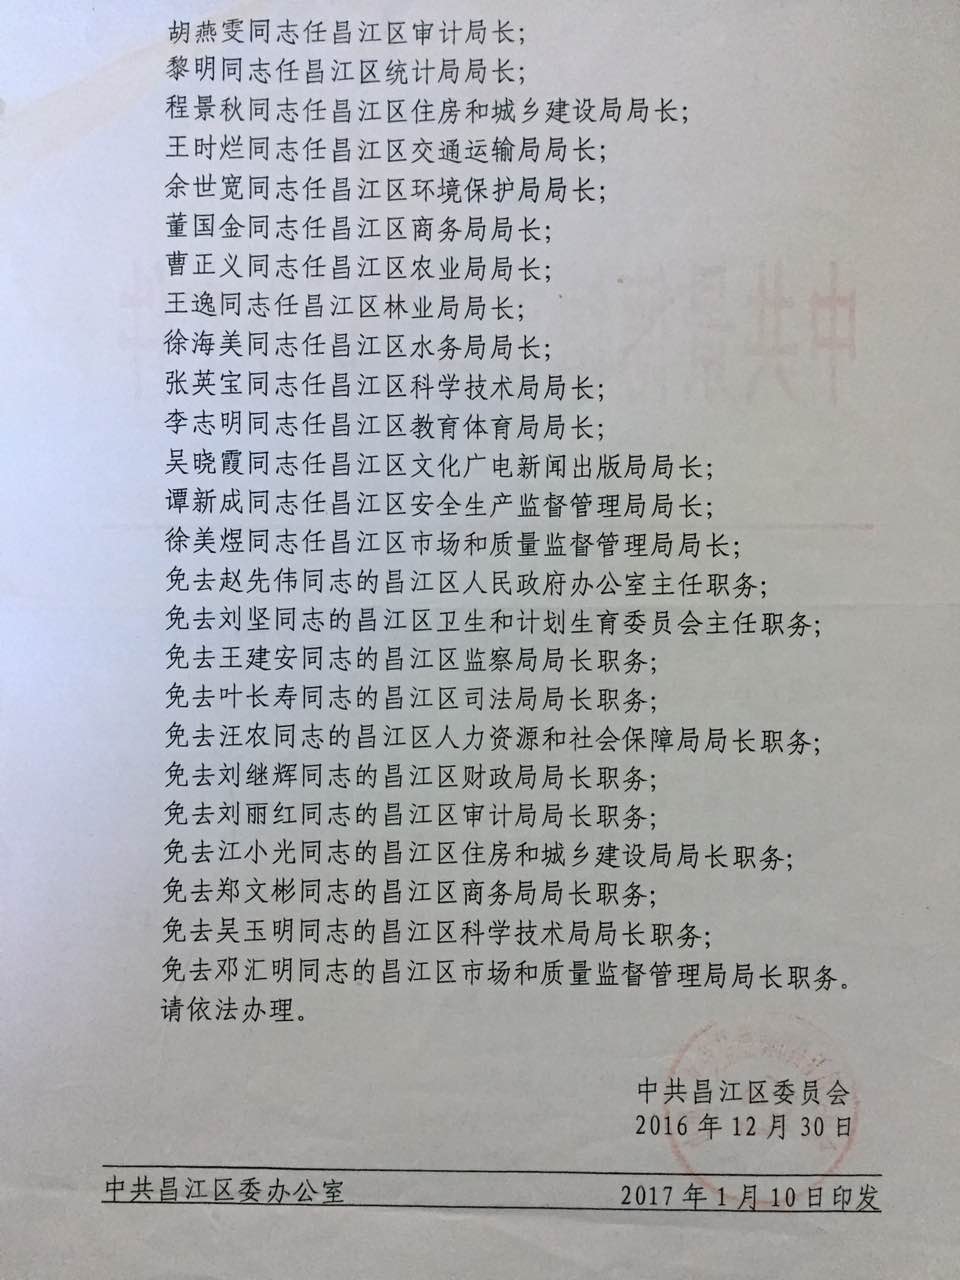 胡燕雯同志任昌江区审计局长；
黎明同志任昌江区统计局局长；
程景秋同志任昌江区住房和城乡建设局局长；
王时烂同志任昌江区交通运输局局长；
余世宽同志任昌江区环境保护局局长；
董国金同志任昌江区商务局局长；
曹正义同志任昌江区农业局局长；
王逸同志任昌江区林业局局长；
徐海美同志任昌江区水务局局长；
张英宝同志任昌江区科学技术局局长；
李志明同志任昌江区教育体育局局长；
吴晓霞同志任昌江区文化广电新闻出版局局长；
谭新成同志任昌江区安全生产监督管理局局长；
徐美煜同志任昌江区市场和质量监督管理局局长；
免去赵先伟同志的昌江区人民政府办公室主任职务；
免去刘坚同志的昌江区卫生和计划生育委员会主任职务；
免去王建安同志的昌江区监察局局长职务；
免去叶长寿同志的昌江区司法局局长职务；
免去汪农同志的昌江区人力资源和社会保障局局长职务；
免去刘继辉同志的昌江区财政局局长职务；
免去刘丽红同志的昌江区审计局局长职务；
免去江小光同志的昌江区住房和城乡建设局局长职务；
免去郑文彬同志的昌江区商务局局长职务；
免去吴玉明同志的昌江区科学技术局局长职务；
免去邓汇明同志的昌江区市场和质量监督管理局局长职务。
请依法办理。
中共昌江区委员会
2016年12月30日
中共昌江区委办公室 2017年1月10日印发